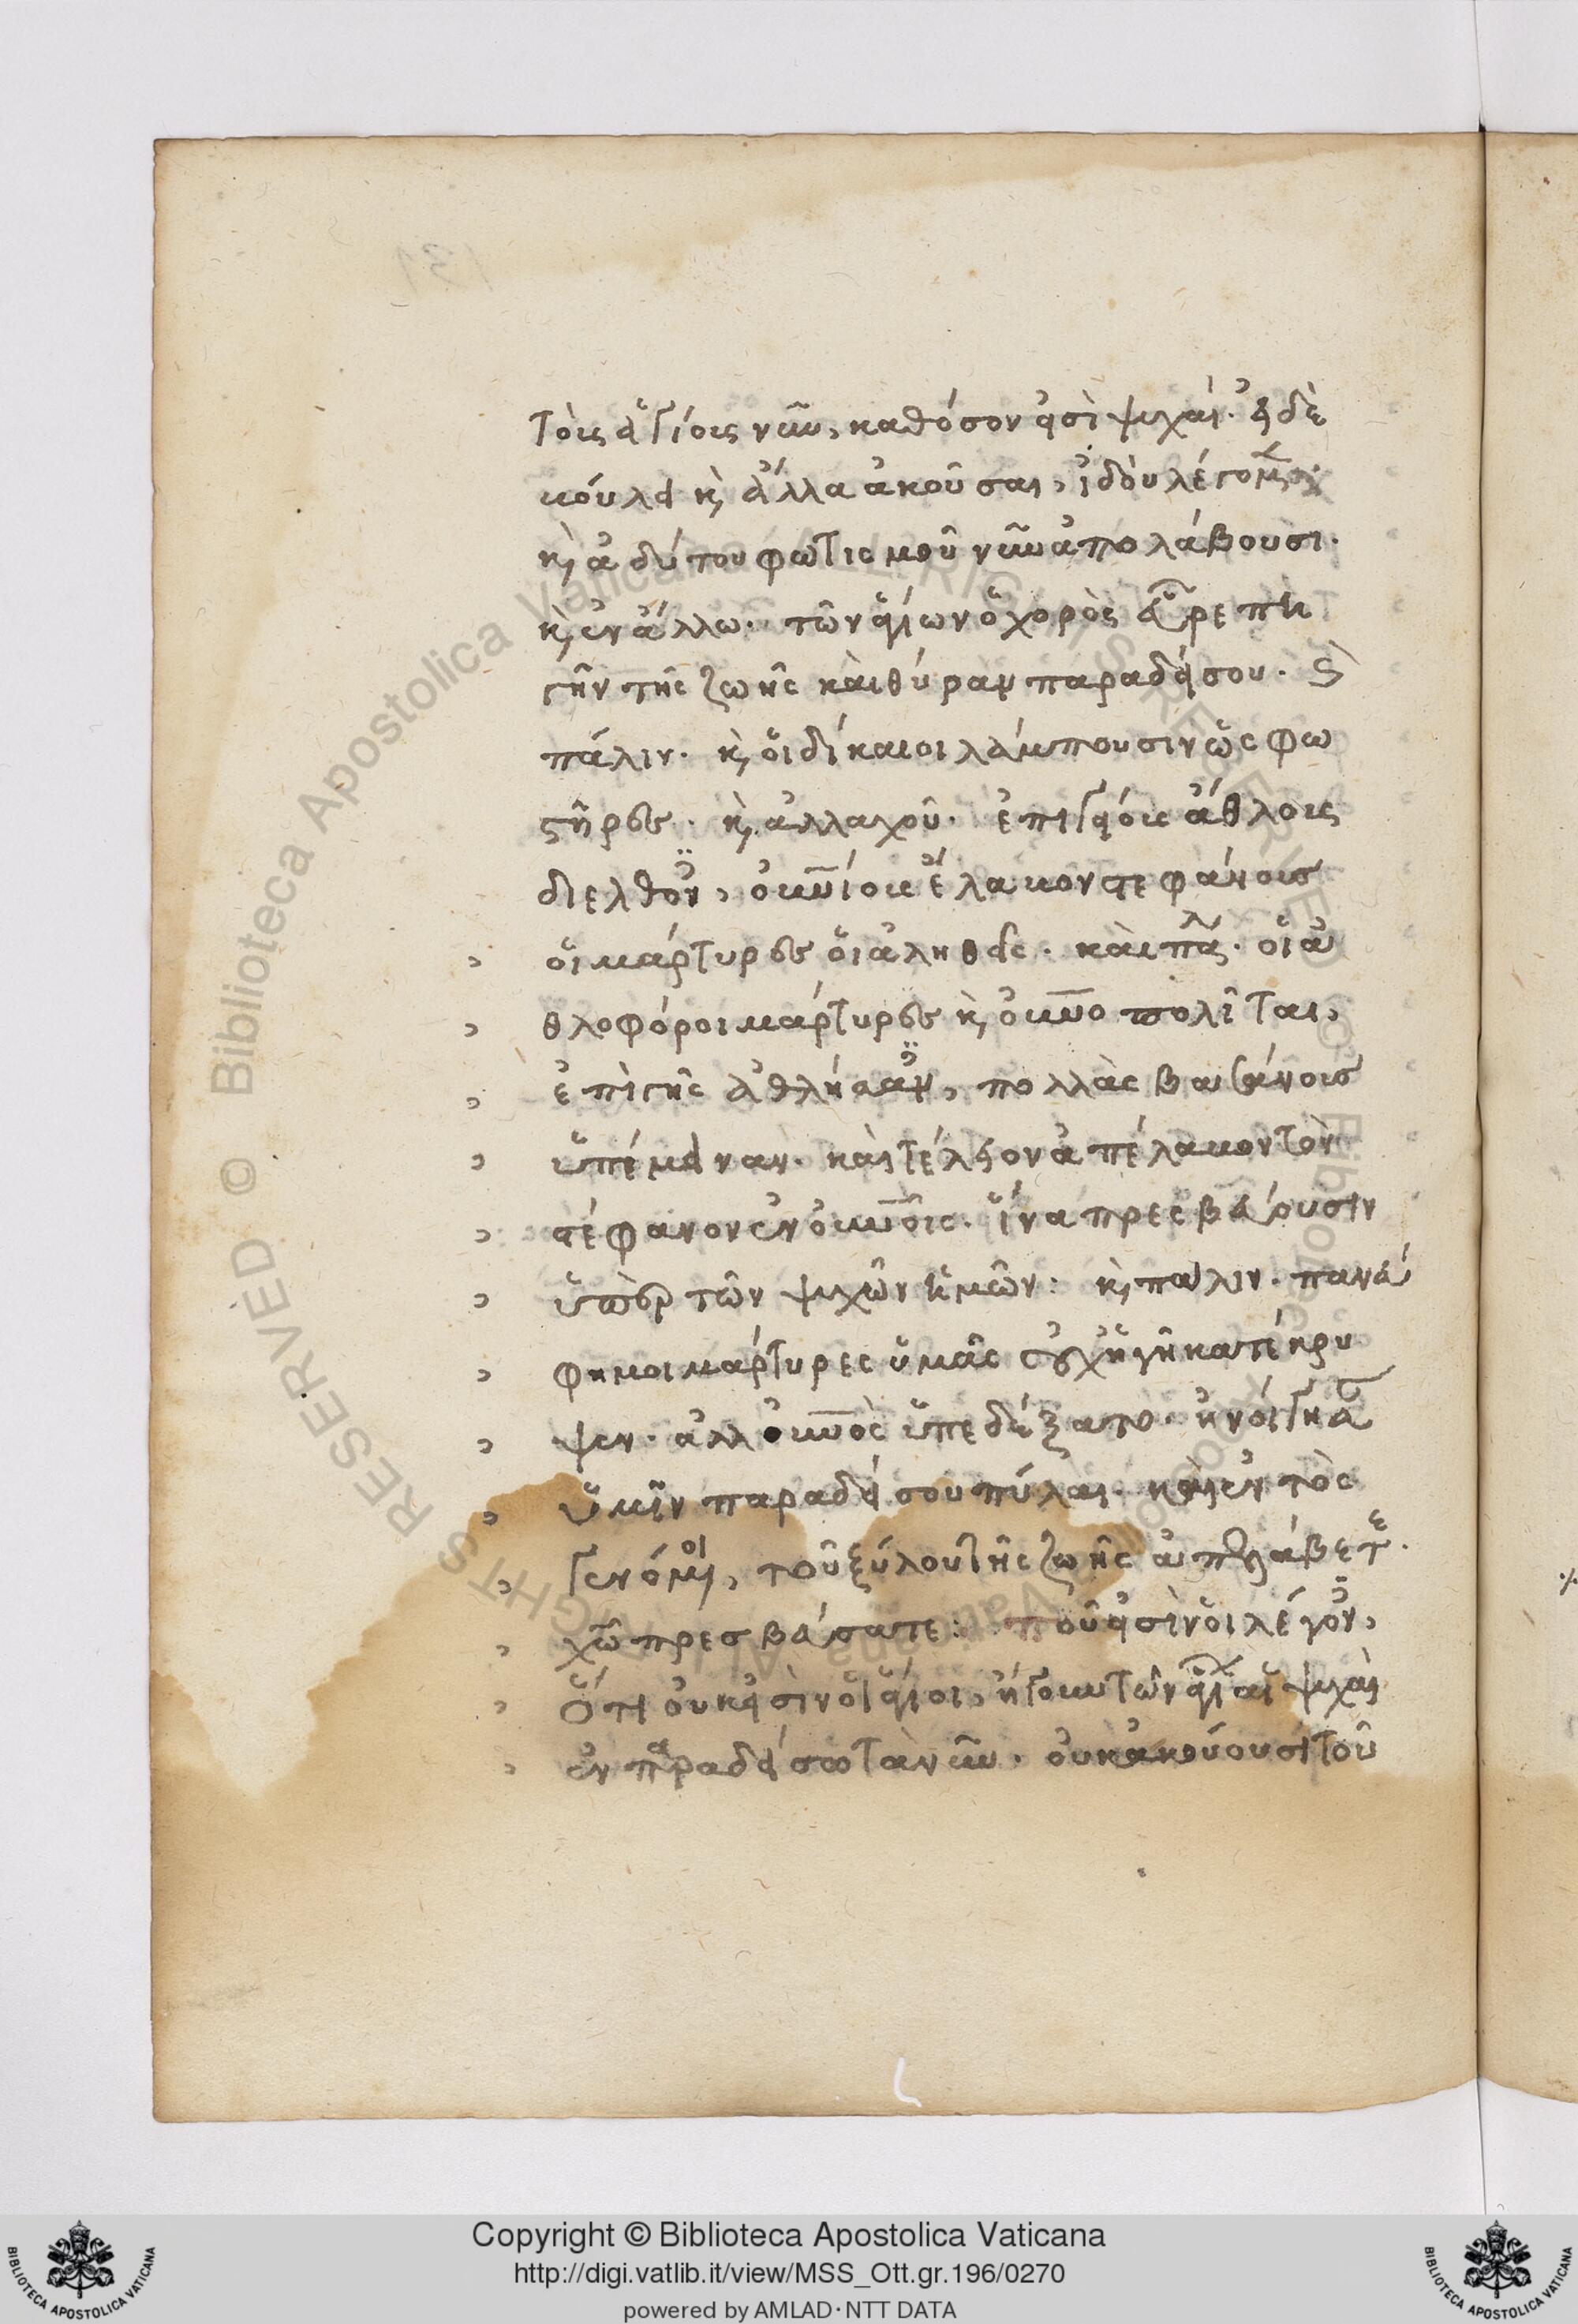 τοῖς ἁγίοις νῦν, καθόσον εἰσὶ ψυχαί. εἰ δὲ
βούλει κ(αὶ) ἄλλα ἀκοῦσαι, ἰδοὺ λέγομεν
κ(αὶ) ἀδύτου φωτισμοῦ νῦν ἀπολάβουσι.
κ(αὶ) ἐν ἄλλω. τῶν ἁγίων ὁ χορὸς εὗρε πη
γὴν τῆς ζωῆς καὶ θύραν παραδείσου. Καὶ
πάλιν. κ(αὶ) οἱ δίκαιοι λάμπουσιν ὡς φω
στῆρες. κ(αὶ) ἀλλαχοῦ. ἐπιγείοις ἄθλοις
διελθόντες, οὐ(ρα)νίοις ἔλαβον στεφάνοις
οἱ μάρτυρες οἱ ἀληθεῖς. καὶ πάλιν. οἱ ἀ
θλοφόροι μάρτυρες κ(αὶ) οὐ(ρα)νοπολῖται,
ἐπὶ γῆς ἀθλήσαντες, πολλὰς βασάνοις
ὑπέμειναν. καὶ τέλειον ἀπέλαβον τὸν
στέφανον ἐν οὐ(ρα)νοῖς. ἵνα πρεσβεύουσιν
ὑπὲρ τῶν ψυχῶν ἡμῶν: κ(αὶ) πάλιν. πανεύ
φημοι μάρτυρες ὑμᾶς οὐχ ἡ γῆ κατέκρυ
ψεν. ἀλλ οὐ(ρα)νὸς ὑπεδέξατο. ἠνοίγησαν
ὑμῖν παραδείσου πύλαι. καὶ ἐντὸς
γενόμενοι, τοῦ ξύλου τῆς ζωῆς ἀπελάβετε.
χ(ριστ)ῶ πρεσβεύσατε: ποῦ εἰσὶν οἱ λέγοντες,
Ὅτι οὐκ εἰσὶν οἱ ἅγιοι, ἤγουν τῶν ἁγίων αἱ ψυχαὶ
ἐν παραδείσω τανῦν. οὐκ ἀκούουσι τοῦ
Copyright © Biblioteca Apostolica Vaticana
http://digi.vatlib.it/view/MSS_Ott.gr.196/0270
powered by AMLAD·NTT DATA